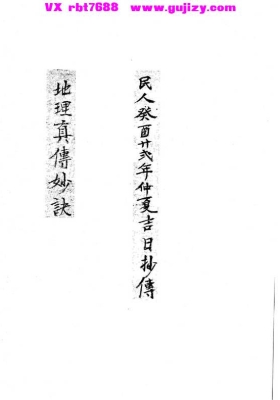 VX rbt7688 www.gujizy.com
民人癸酉廿弍年仲夏吉日抄傳
地理真傳妙訣